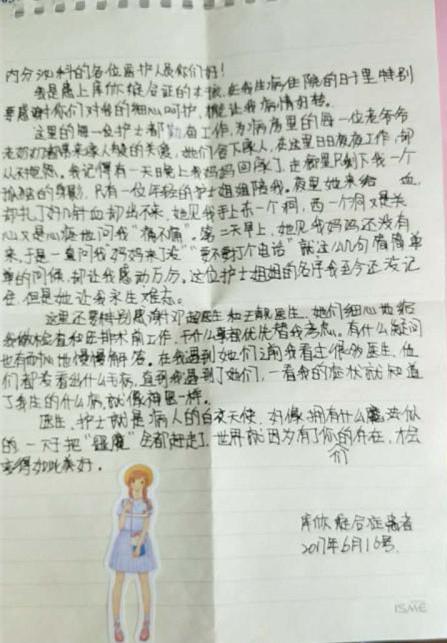 内分泌科的各位医护人员你们好!
我是患上库欣综合征的李振,在我生病住院的日子里,特别
要感谢你们对我的细心呵护,才能让我病情好转。
这里的每一位护士都勤奋工作,为病房里的每一位老爷爷
老奶奶都带来亲人般的关爱,她们舍下家人,在这里日日夜夜工作,却
从无抱怨。我记得有一天晚上我妈妈回家了,走廊里只剩下我一个
孤独的身影,只有一位年轻的护士姐姐陪我。夜里她来给 血,
却扎了好几针血却出不来,她见我手上东一个洞,西一个洞又是关
心又是心疼地问我"痛不痛"。第二天早上,她见我妈妈还没有
来,于是一直问我"妈妈来了没""要不要打个电话"就这么几句简简单
单的问候,却让我感动万分。这位护士姐姐的名字我至今还没记
住,但是她让我永生难忘。
这里还要特别感谢邓 医生和王靓医生,她们细心地给
我做检查和安排术前工作,干什么事都优先替我考虑。有什么疑问
也有耐心地慢慢解答。在我遇到她们之前我看过很多医生,但
们都没看出什么毛病,直到我遇到了她们,一看我的症状就知道
了我生的什么病,就像神医一样。
医生、护士就是病人的白衣天使,好像拥有什么魔法似
的一下子把"病魔"全都赶走了,世界就因为有了你的存在,才会
们
变得如此美好。
库欣综合症患者
2017年6月16号
ISME